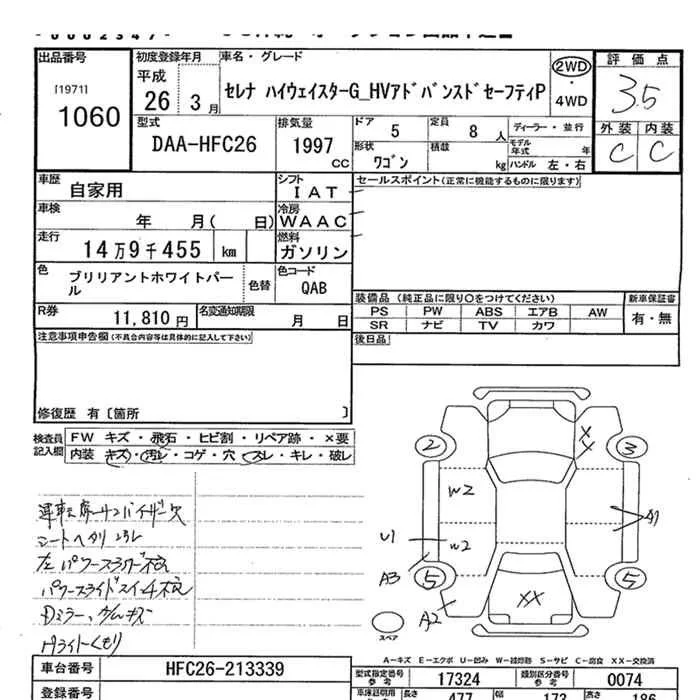 出品番号
[1971]
1060
初度登録年月
平成
26 3 月
車名・グレード
セレナ ハイウェイスターG_HVアドバンスドセーフティP
2WD
・
4WD
評価点
3.5
外装 内装
C C
型式
DAA-HFC26
排気量
1997
CC
ドア 5
定員 8 人
形状
ワゴン
積載
kg
ディーラー・並行
モデル年式 年
ハンドル 左・右
車歴
自家用
シフト
IAT
セールスポイント(正常に機能するものに限ります)
車検
年 月( 日)
冷房
WAAC
走行
14万9千455 km
燃料
ガソリン
色
ブリリアントホワイトパール
色替
色コード
QAB
R券
11,810 円
名変通知期限
月 日
装備品(純正品に限り○をつけてください)
PS PW ABS エアB AW
SR ナビ TV カワ
新車保証書
有・無
後日品
注意事項申告欄(不具合内容等は具体的に記入して下さい)
修復歴 有〔箇所 〕
検査員記入欄
FW キズ・飛石・ヒビ割・リペア跡・×要
内装 キズ・汚レ・コゲ・穴・スレ・キレ・破レ
運転席サンバイザー欠
シートヘタリ
左パワースライド
パワースライドスイッチ
Dミラー
Hライトくもり
2 3
W2
W2
U1
A3
A1
5 5
A2
XX
スペア
A-キズ E-エクボ U-凹み W-補修跡 S-サビ C-腐食 XX-交換済
車台番号
HFC26-213339
登録番号
型式指定番号
参考
17324
類別区分番号
参考
0074
長さ 477 幅 173 高さ 186